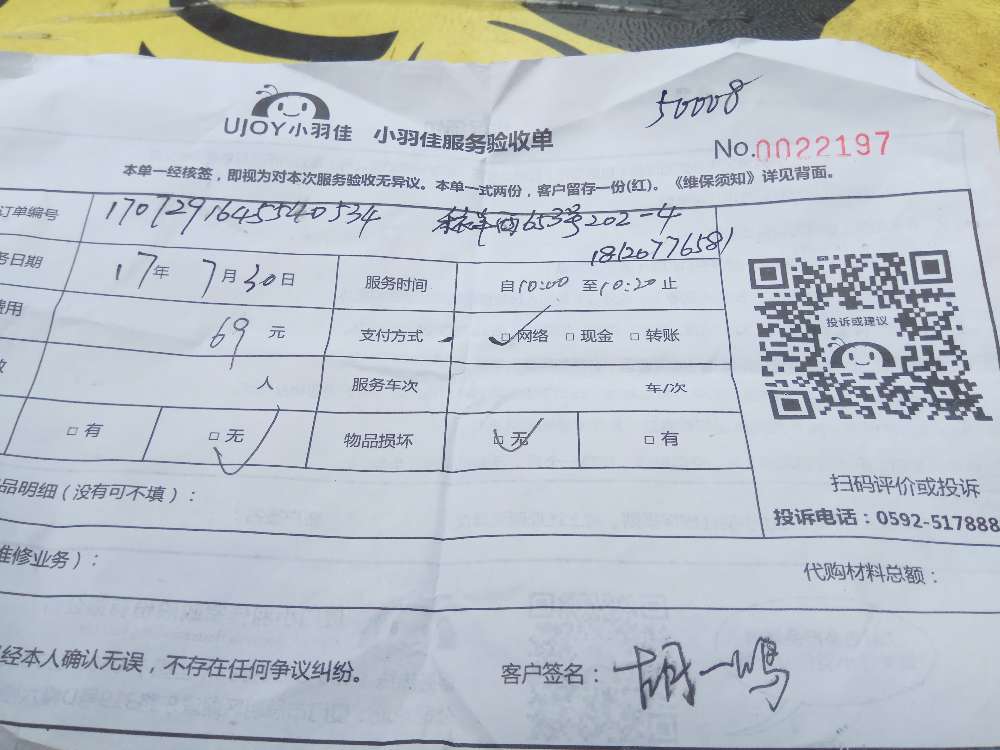 50008
UJOY小羽佳 小羽佳服务验收单
No.0022197
本单一经核签，即视为对本次服务验收无异议。本单一式两份，客户留存一份(红)。《维保须知》详见背面。
订单编号 1707291645540534 653号202-4
18120776581
务日期 17年7月30日 服务时间 自10:00 至10:20止
费用 69 元 支付方式 □网络 □现金 □转账
人 服务车次 车/次
□有 □无 物品损坏 □无 □有
投诉或建议
扫码评价或投诉
投诉电话：0592-517888
品明细（没有可不填）：
维修业务）：
代购材料总额：
经本人确认无误，不存在任何争议纠纷。
客户签名：胡一鸣